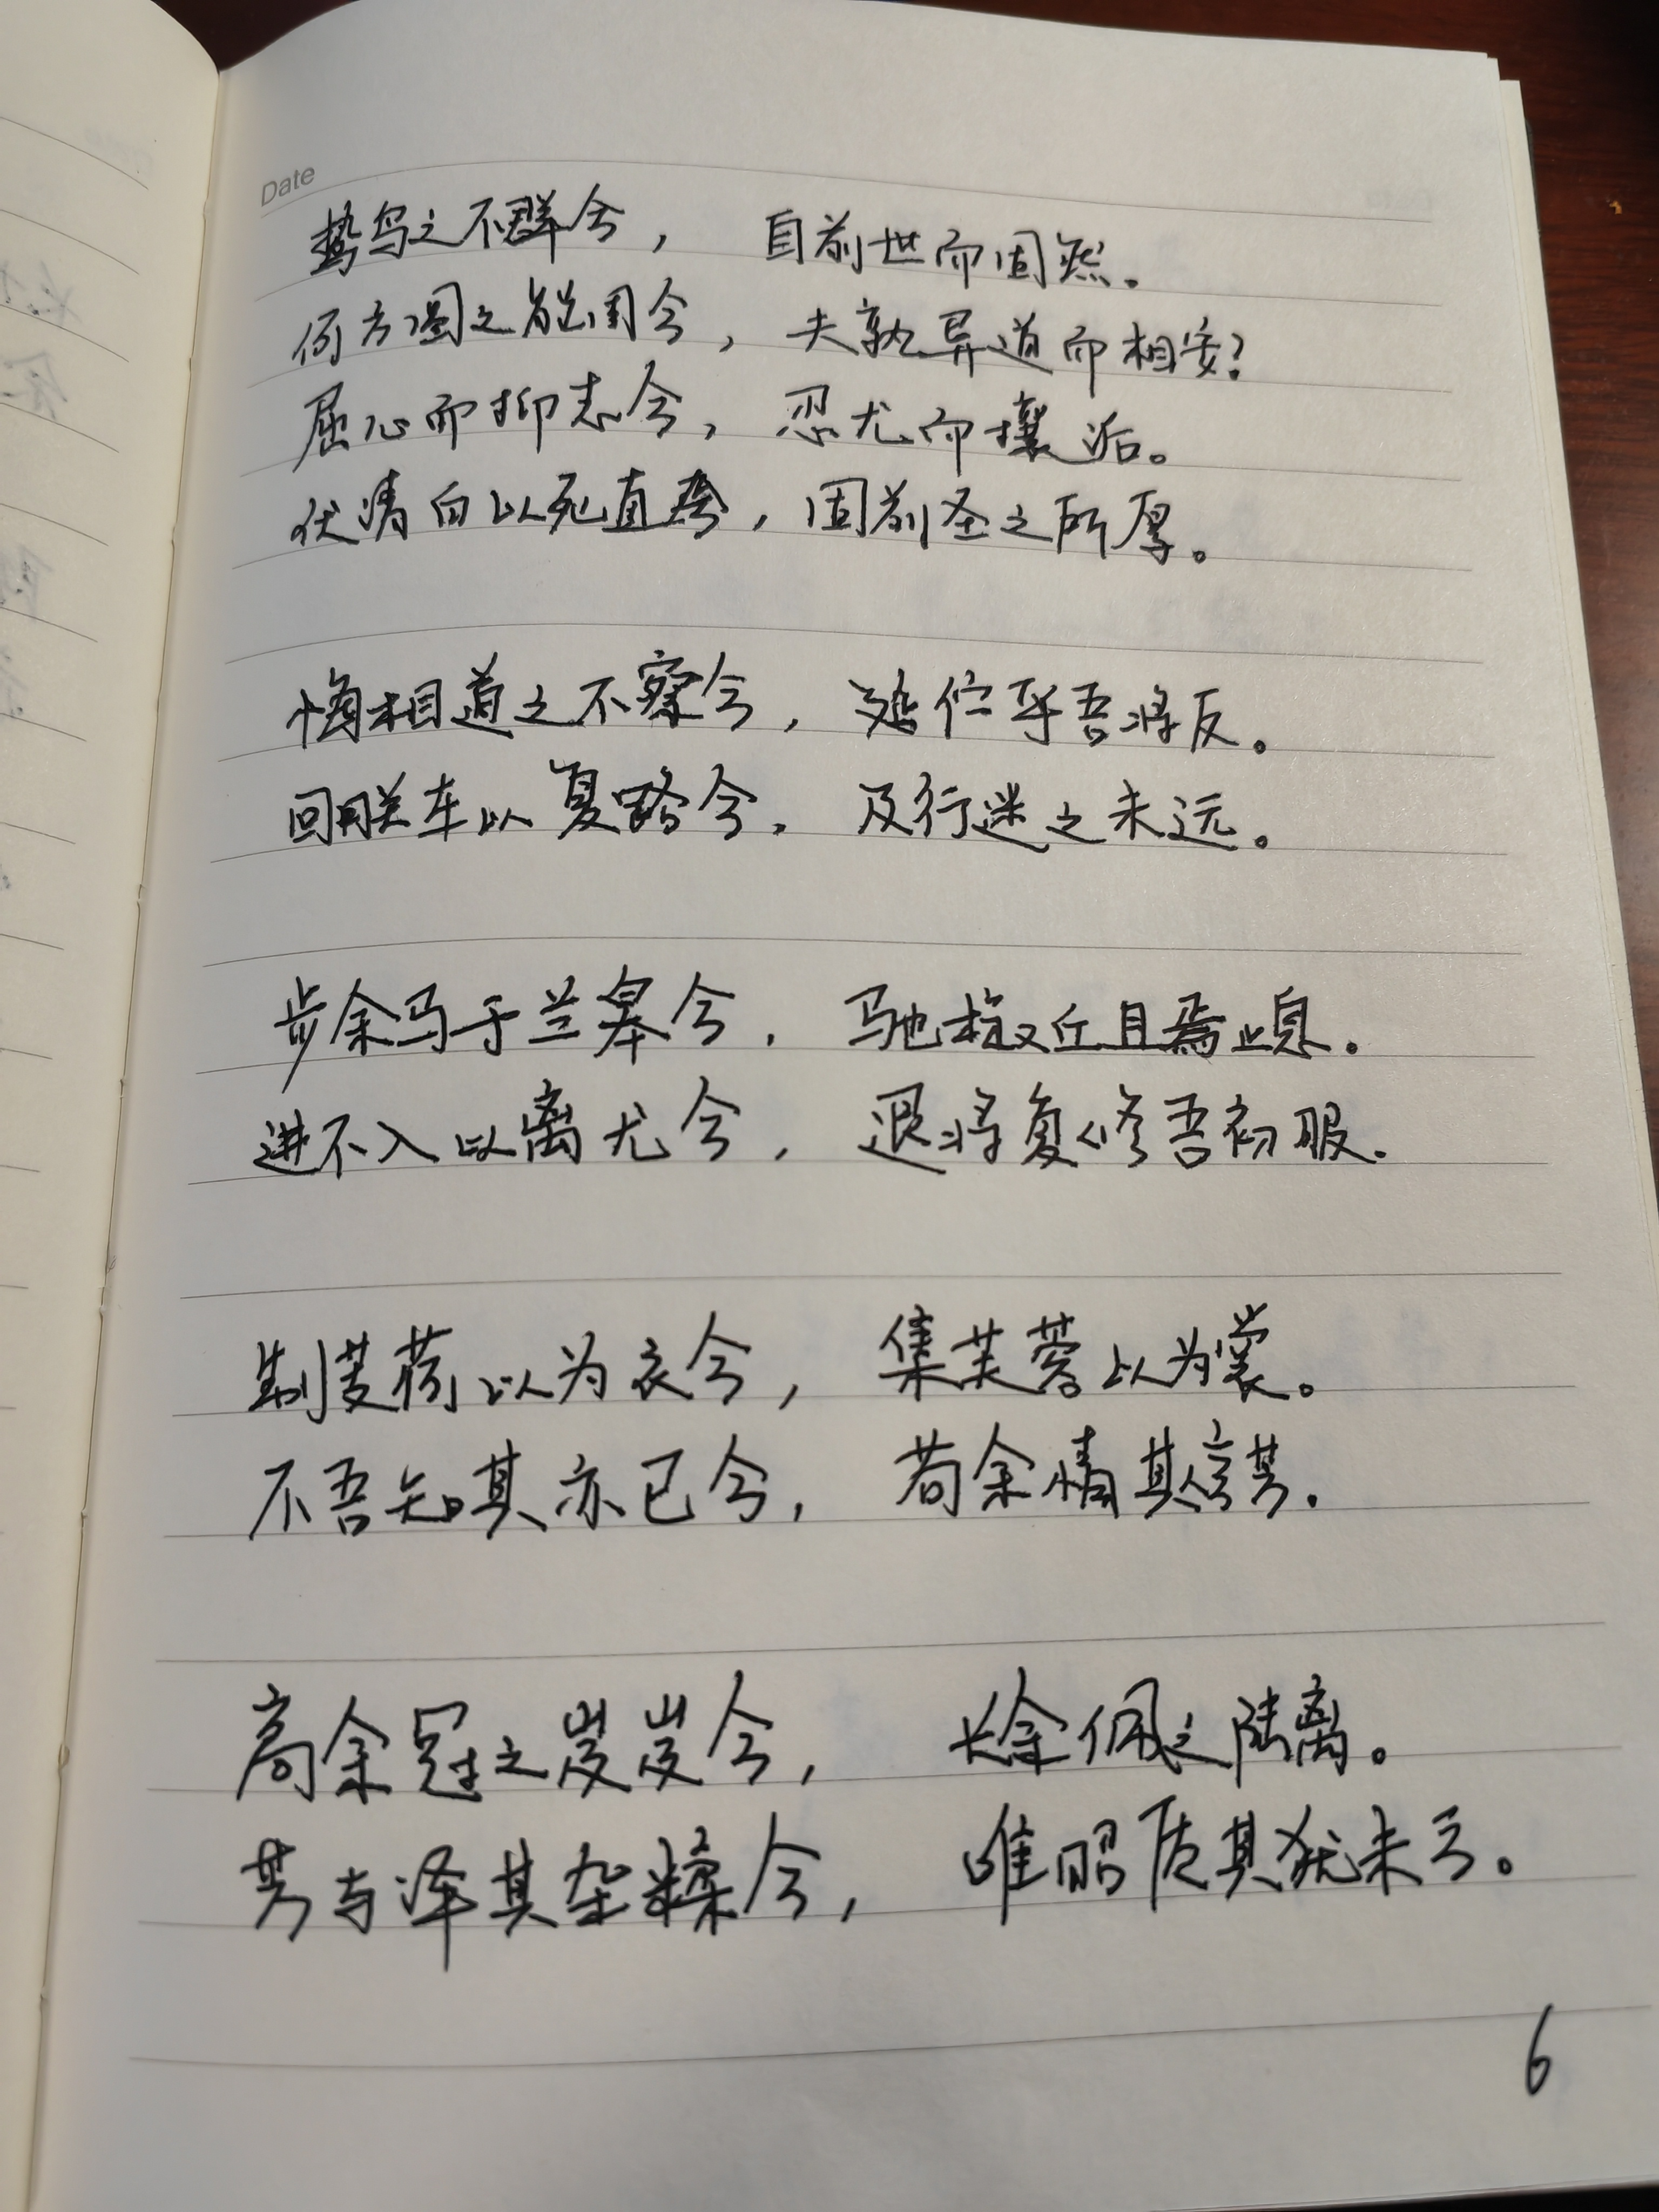 Date
鸷鸟之不群兮，自前世而固然。
何方圜之能周兮，夫孰异道而相安？
屈心而抑志兮，忍尤而攘诟。
伏清白以死直兮，固前圣之所厚。
悔相道之不察兮，延伫乎吾将反。
回朕车以复路兮，及行迷之未远。
步余马于兰皋兮，驰椒丘且焉止息。
进不入以离尤兮，退将复修吾初服。
制芰荷以为衣兮，集芙蓉以为裳。
不吾知其亦已兮，苟余情其信芳。
高余冠之岌岌兮，长余佩之陆离。
芳与泽其杂糅兮，唯昭质其犹未亏。
6